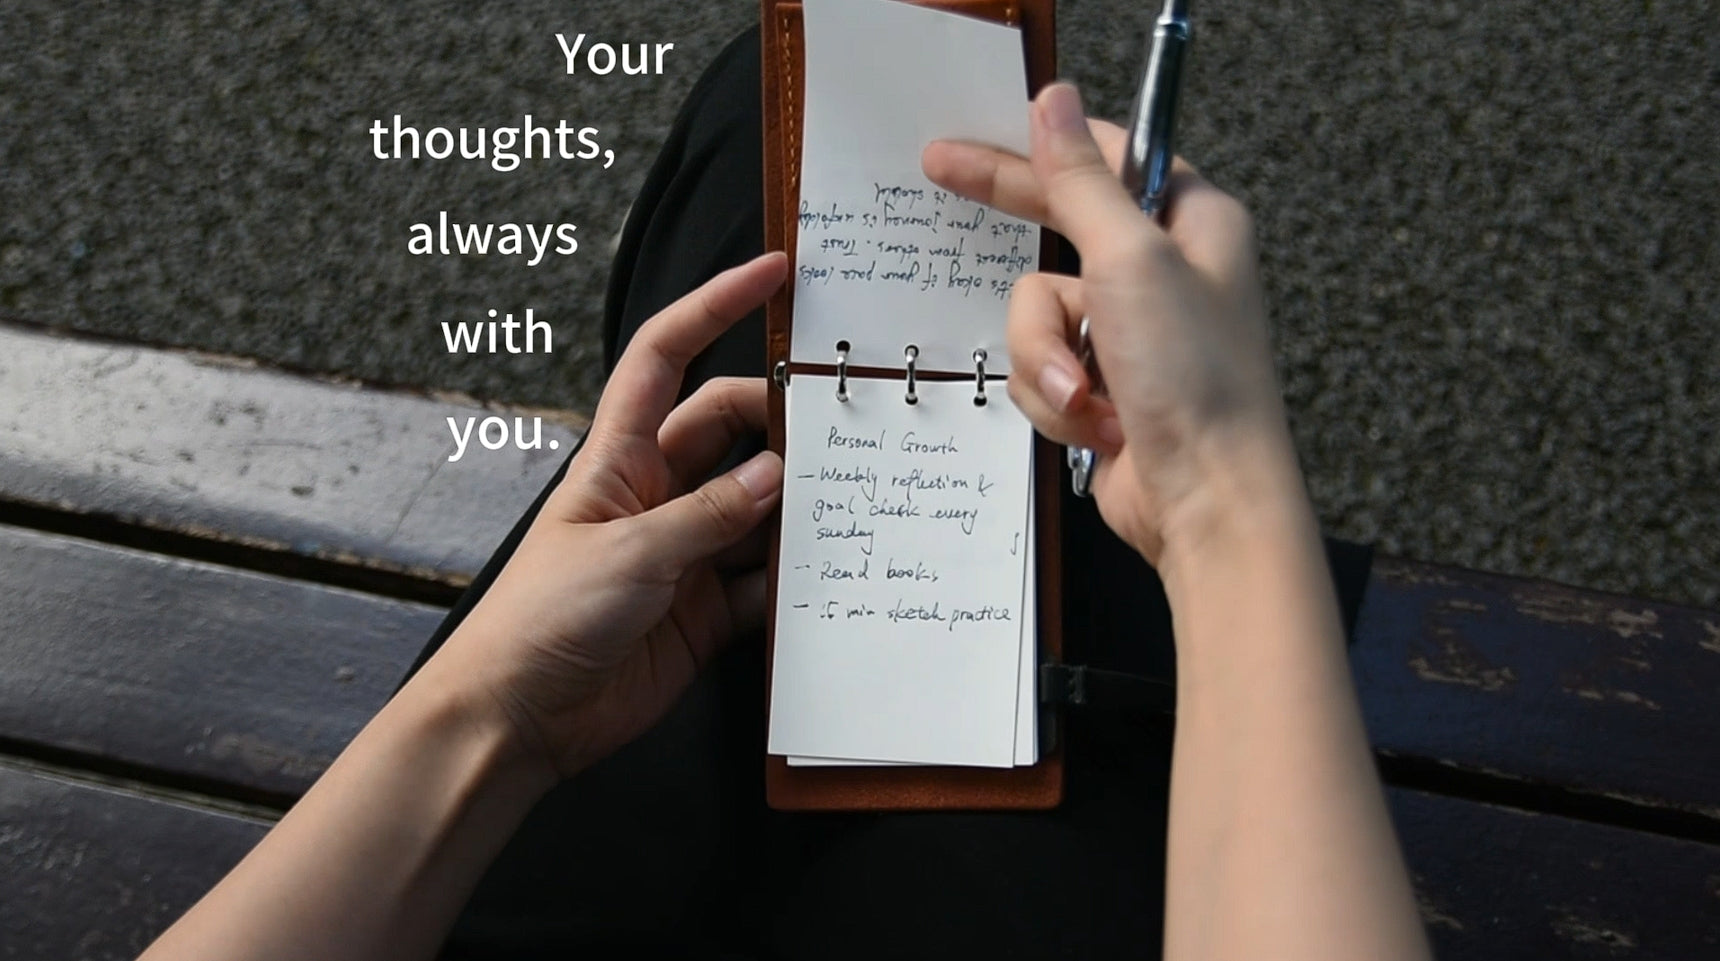 Your
thoughts,
always
with
you.
it's okay if your pace looks
different from others. Trust
that your journey is unfolding
it should
Personal Growth
- Weekly reflection &
goal check every
sunday
- Read books
- 15 min sketch practice